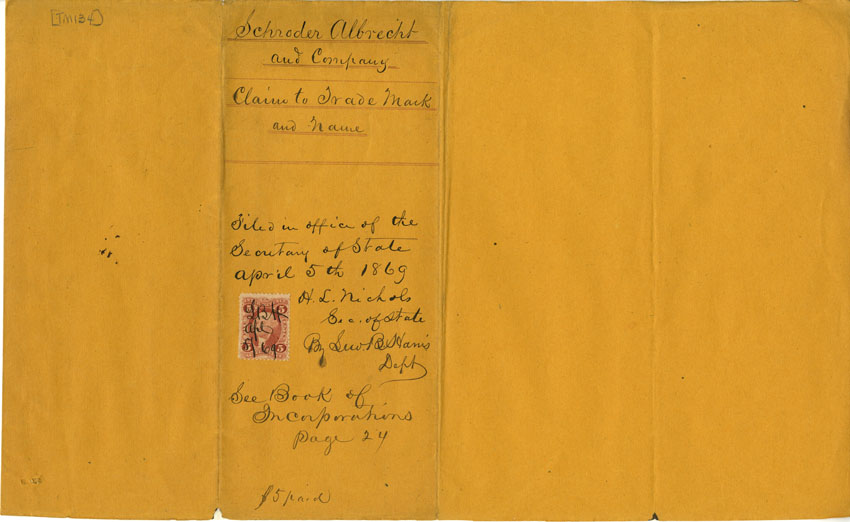 [TM134]
Schroder Albrecht
and Company
Claim to Trade Mark
and Name
Filed in office of the
Secretary of State
april 5th 1869
H. L. Nichols
Sec. of State
By Geo B Harris
Dept
5
5
GBH
apl
5/69
See Book of
Incorporations
page 24
$5 paid